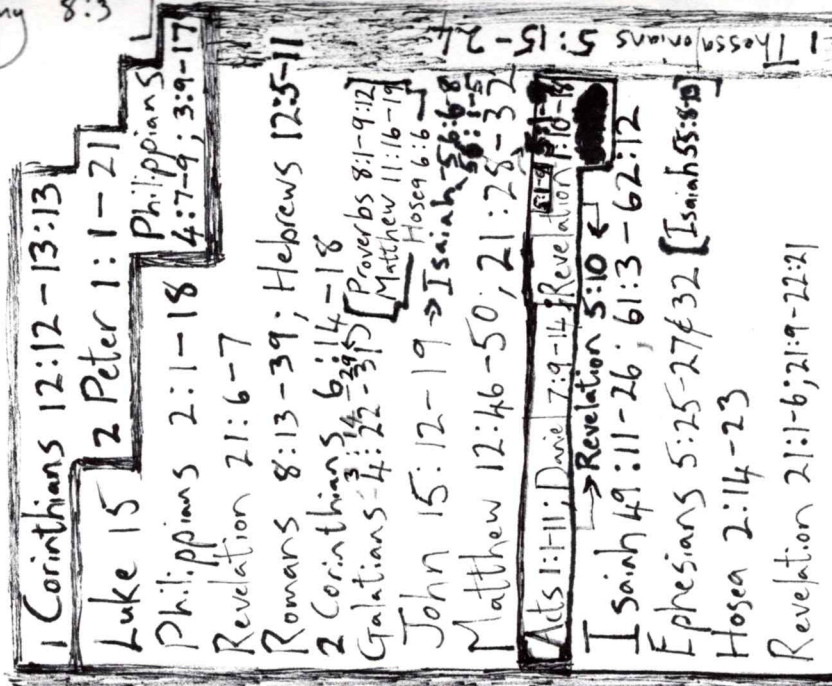 8:3
1 Thessalonians 5:15-24
1 Corinthians 12:12-13:13
Luke 15
2 Peter 1:1-21
Philippians
4:7-9; 3:9-17
Philippians 2:1-18
Revelation 21:6-7
Romans 8:13-39; Hebrews 12:5-11
2 Corinthians 6:14-18
Galatians 3:14-29 4:22-31 [Proverbs 8:1-9:12]
Matthew 11:16-19
Hosea 6:6]
John 15:12-19 → Isaiah 56:6-8
Matthew 12:46-50; 21:28-32
Acts 1:1-11; Daniel 7:9-14; Revelation 1:10-18
→ Revelation 5:10
Isaiah 49:11-26; 61:3-62:12
Ephesians 5:25-27¢32 [Isaiah 55:8-13]
Hosea 2:14-23
Revelation 21:1-6; 21:9-22:21